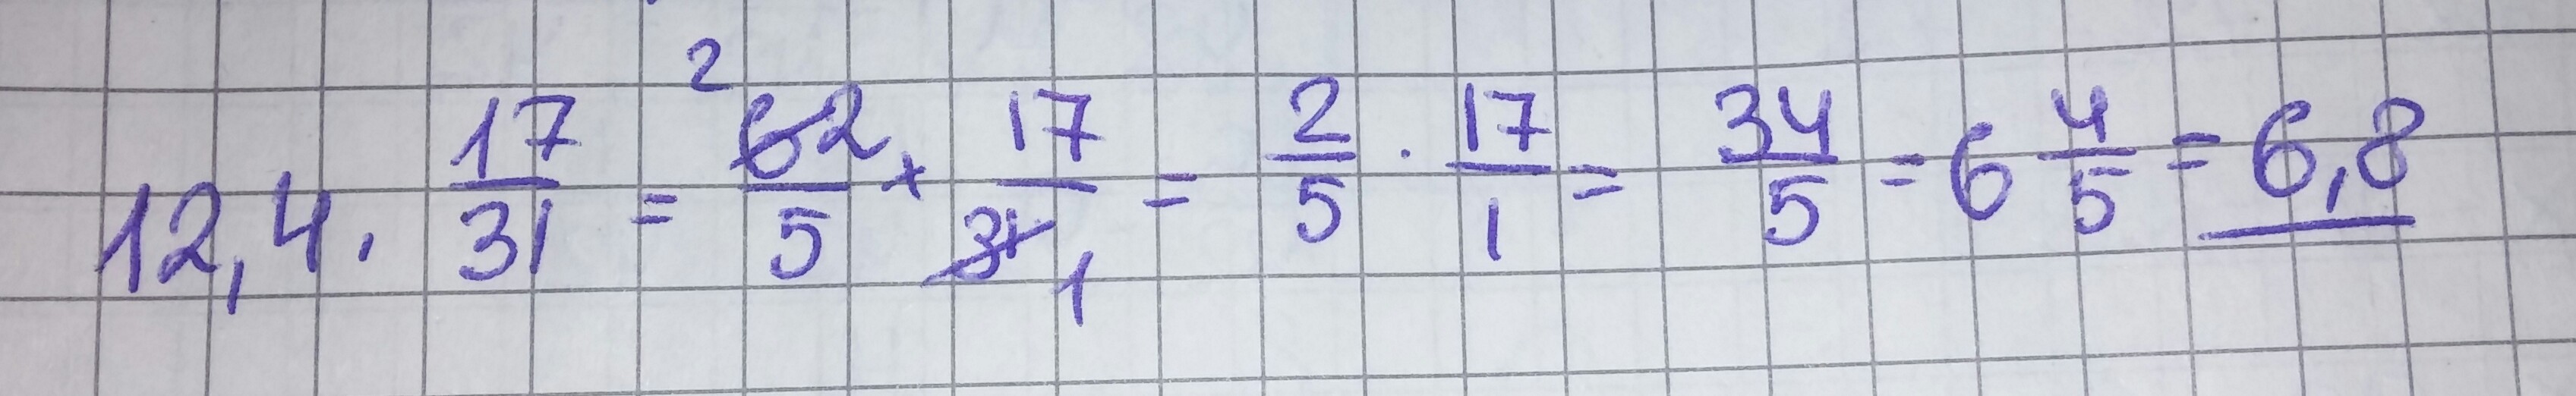 12,4 · 17/31 = ²62/5 × 17/31 ₁ = 2/5 · 17/1 = 34/5 = 6 4/5 = 6,8